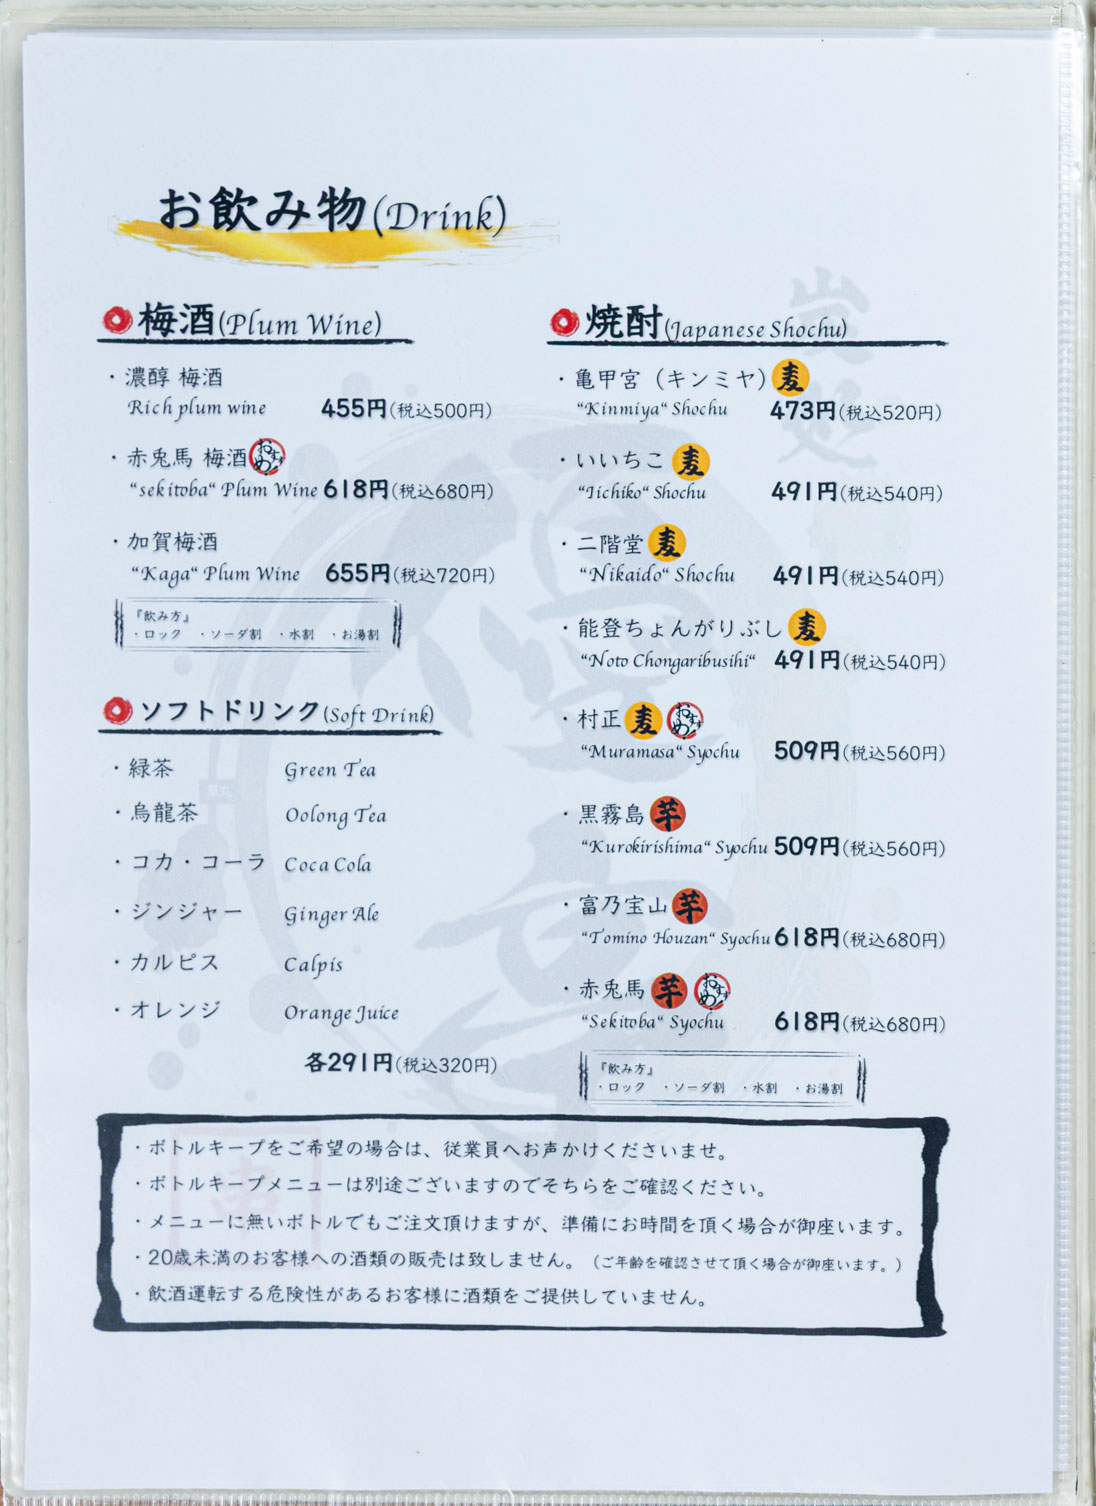 お飲み物(Drink)
梅酒(Plum Wine)
・濃醇 梅酒
Rich plum wine 455円(税込500円)
・赤兎馬 梅酒 おすすめ!
"sekitoba" Plum Wine 618円(税込680円)
・加賀梅酒
"Kaga" Plum Wine 655円(税込720円)
『飲み方』
・ロック ・ソーダ割 ・水割 ・お湯割
ソフトドリンク(Soft Drink)
・緑茶 Green Tea
・烏龍茶 Oolong Tea
・コカ・コーラ Coca Cola
・ジンジャー Ginger Ale
・カルピス Calpis
・オレンジ Orange Juice
各291円(税込320円)
焼酎(Japanese Shochu)
・亀甲宮（キンミヤ）麦
"Kinmiya" Shochu 473円(税込520円)
・いいちこ 麦
"Iichiko" Shochu 491円(税込540円)
・二階堂 麦
"Nikaido" Shochu 491円(税込540円)
・能登ちょんがりぶし 麦
"Noto Chongaribusihi" 491円(税込540円)
・村正 麦 おすすめ!
"Muramasa" Syochu 509円(税込560円)
・黒霧島 芋
"Kurokirishima" Syochu 509円(税込560円)
・富乃宝山 芋
"Tomino Houzan" Syochu 618円(税込680円)
・赤兎馬 芋 おすすめ!
"Sekitoba" Syochu 618円(税込680円)
『飲み方』
・ロック ・ソーダ割 ・水割 ・お湯割
・ボトルキープをご希望の場合は、従業員へお声かけくださいませ。
・ボトルキープメニューは別途ございますのでそちらをご確認ください。
・メニューに無いボトルでもご注文頂けますが、準備にお時間を頂く場合が御座います。
・20歳未満のお客様への酒類の販売は致しません。（ご年齢を確認させて頂く場合が御座います。）
・飲酒運転する危険性があるお客様に酒類をご提供していません。